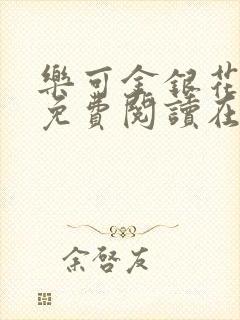 樂可金銀花
免費閱讀在
余啓友